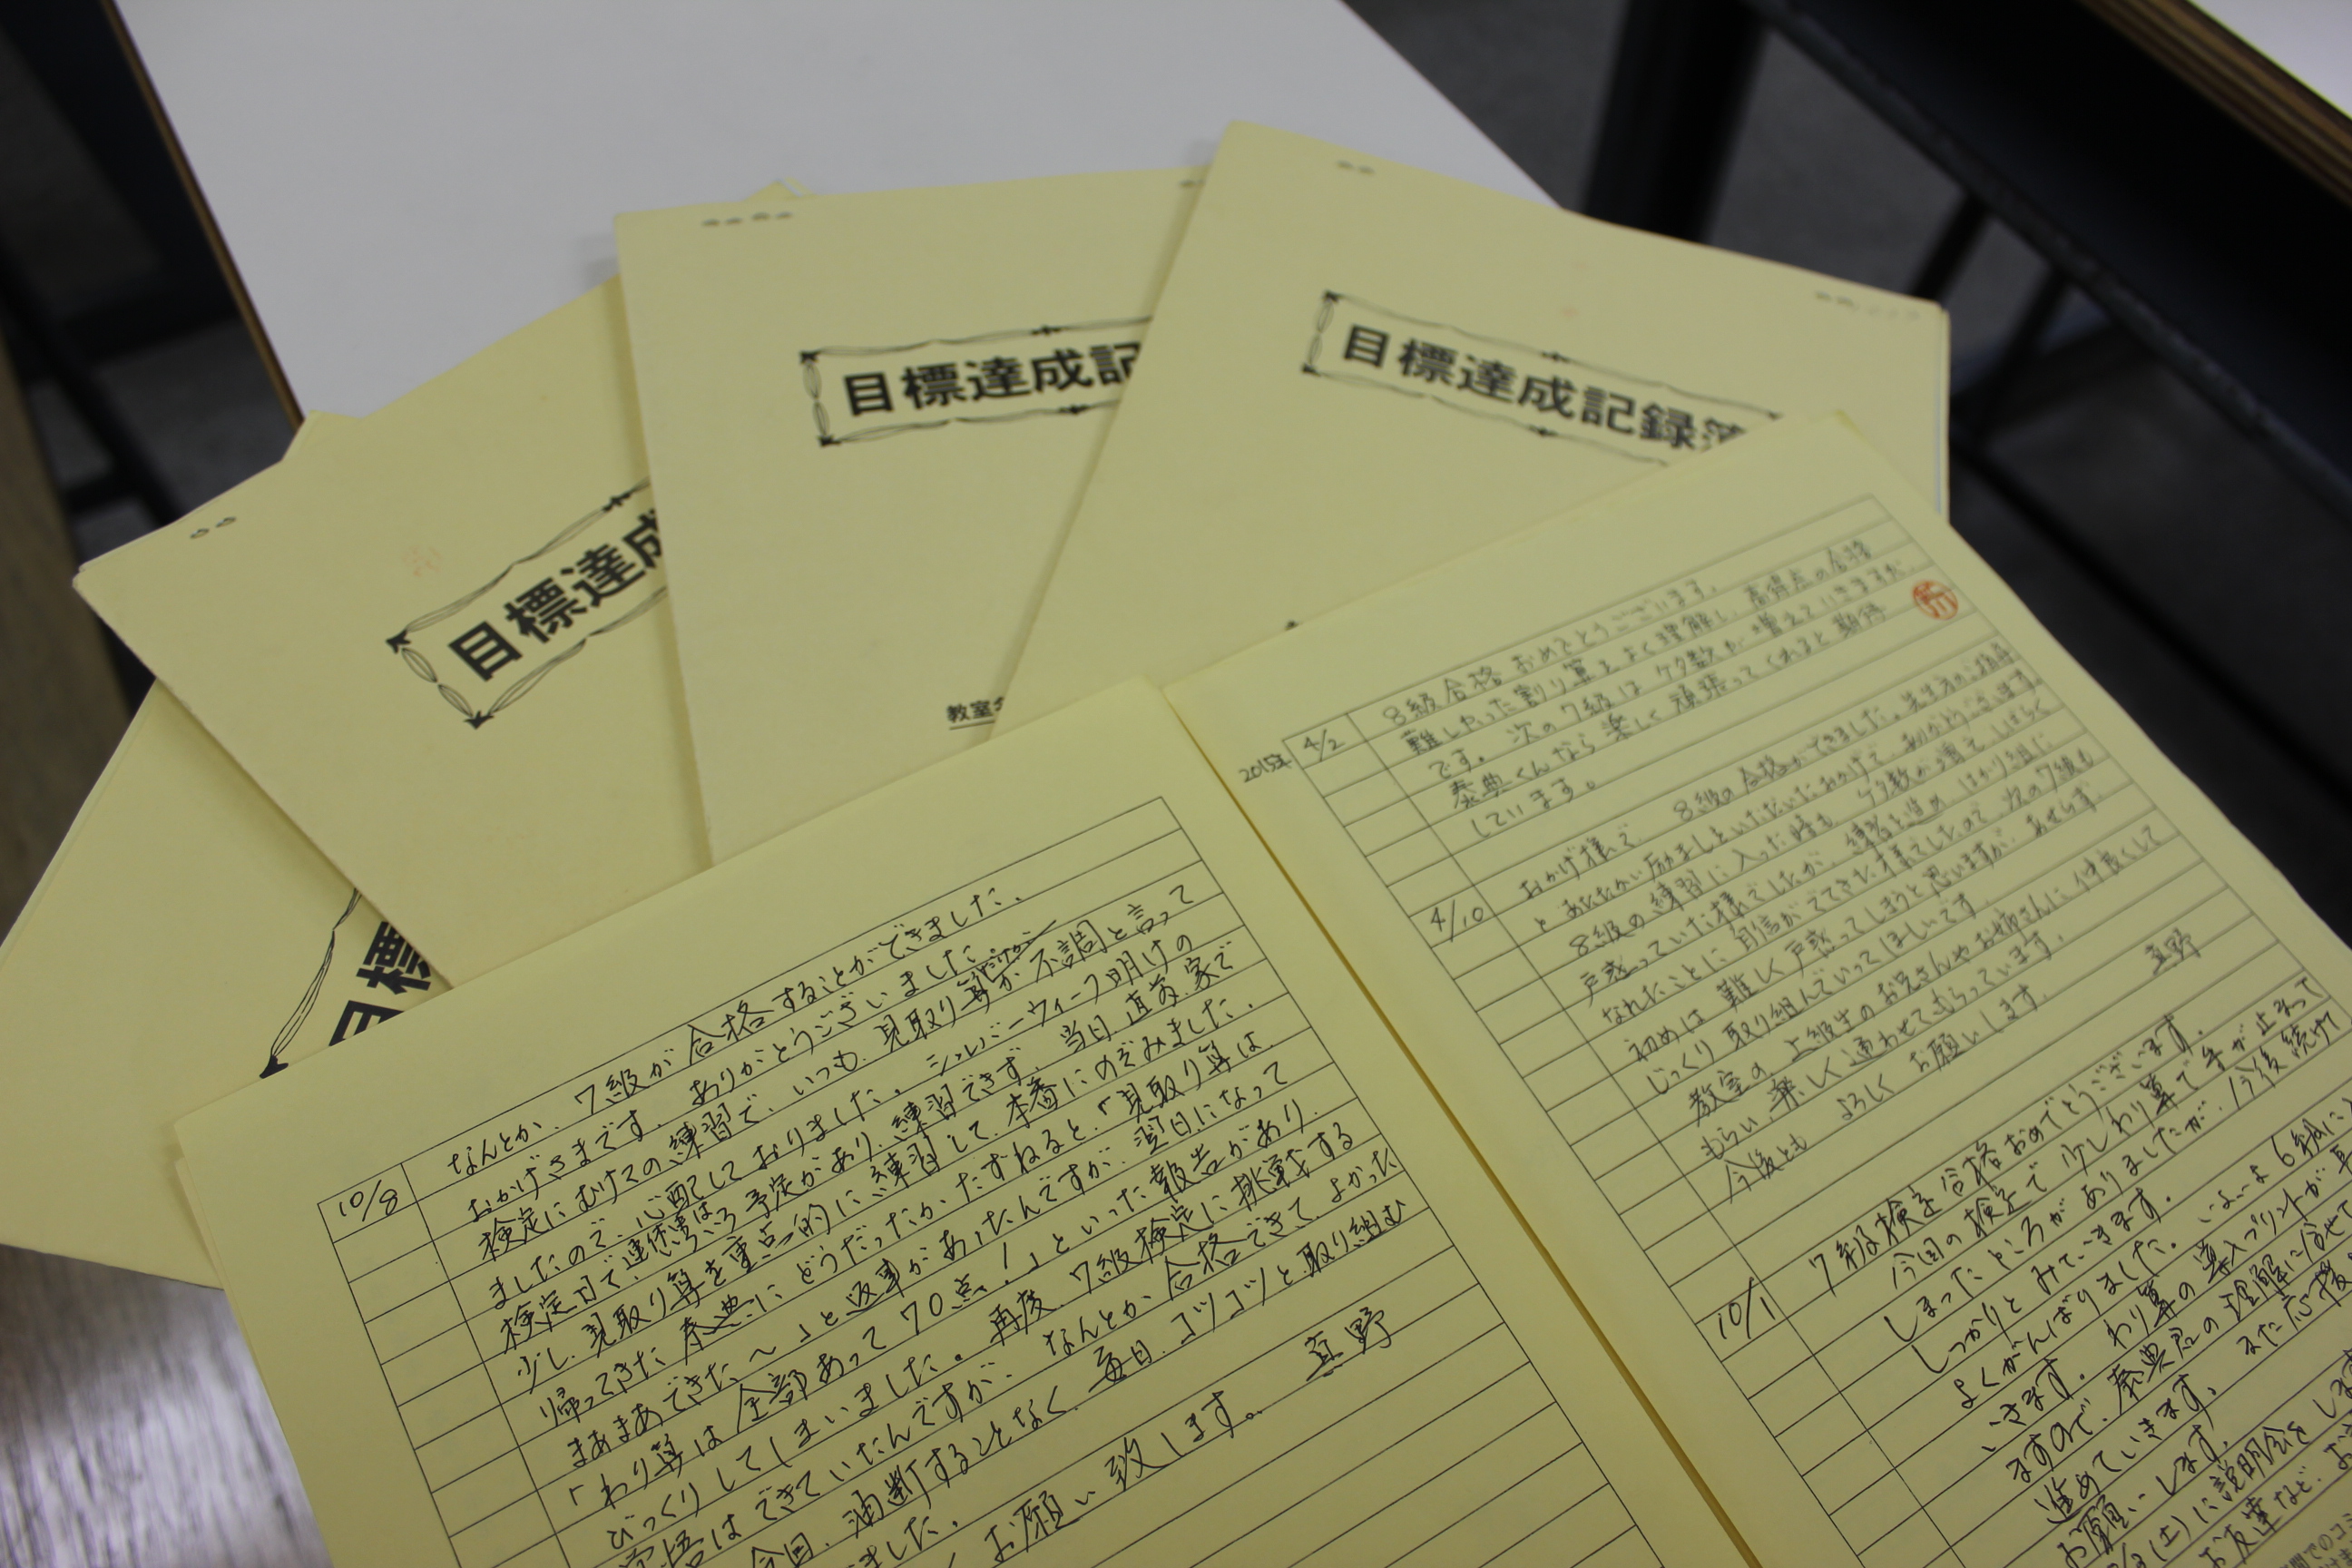 目標達成記
目標達成記録簿
目標達成
目標
教室
2015年
4/2
8級合格おめでとうございます。
難しかった割り算もよく理解し、高得点の合格
です。次の7級はケタ数が増えていきますが、
泰典くんなら楽しく頑張ってくれると期待
しています。
4/10
おかげ様で、8級の合格ができました。先生方のご指導
とあたたかい励ましをいただいたおかげで、ありがとうございます。
8級の練習に入った時も、ケタ数が増え、しばらく
戸惑っていた様でしたが、練習を進め、はかり組に
なれたことに自信がでてきた様でしたので、次の7級も
初めは難しく戸惑ってしまうと思いますが、あせらず、
じっくり取り組んでいってほしいです。
教室の上級生のお兄さんやお姉さんに仲良くして
もらい、楽しく通わせてもらっています。
今後とも よろしくお願いします。
真野
10/1
7級検定合格おめでとうございます。
今回の検定で少しわり算で手が止まって
しまったところがありましたが、今後続けて
しっかりとみていきます。
よくがんばりました。いよいよ6級に
いきます。わり算の導入プリントが
ますので、泰典君の理解に合せて
進めていきます。また応援
お願いします。
(土)に説明会をします
お友達など、お
10/8
なんとか、7級が合格することができました。
おかげさまです。ありがとうございました。
検定にむけての練習で、いつも、見取り算が不調と言って
ましたので、心配しておりました。シルバーウィーク明けの
検定日で、連休はいろいろ予定があり、練習できず、当日直前、家で
少し、見取り算を重点的に練習して、本番にのぞみました。
帰ってきた泰典に どうだったかたずねると、「見取り算は
まあまあできた〜」と返事があったんですが、翌日になって
「わり算は全部あって70点！」といった報告があり、
びっくりしてしまいました。再度、7級検定に挑戦する
覚悟はできていたんですが、なんとか合格できて、よかった
今回、油断することなく、毎日、コツコツと取り組む
ました。
お願い致します。
真野